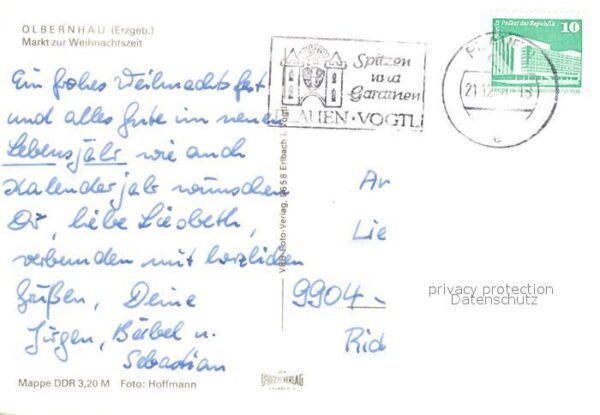 OLBERNHAU (Erzgeb.)
Markt zur Weihnachtszeit
Ein frohes Weihnachtsfest
und alles Gute im neuen
Lebensjahr wie auch
Kalenderjahr wünschen
Dir, liebe Liesbeth,
verbunden mit herzlichen
Grüßen, Deine
Jürgen, Bärbel u.
Sebastian
Mappe DDR 3,20 M Foto: Hoffmann
Spitzen
und
Gardinen
PLAUEN · VOGTL
21.12.
e
Palast der Republik
10
VERLAG
Lie
9904 -
Rid
privacy protection
Datenschutz